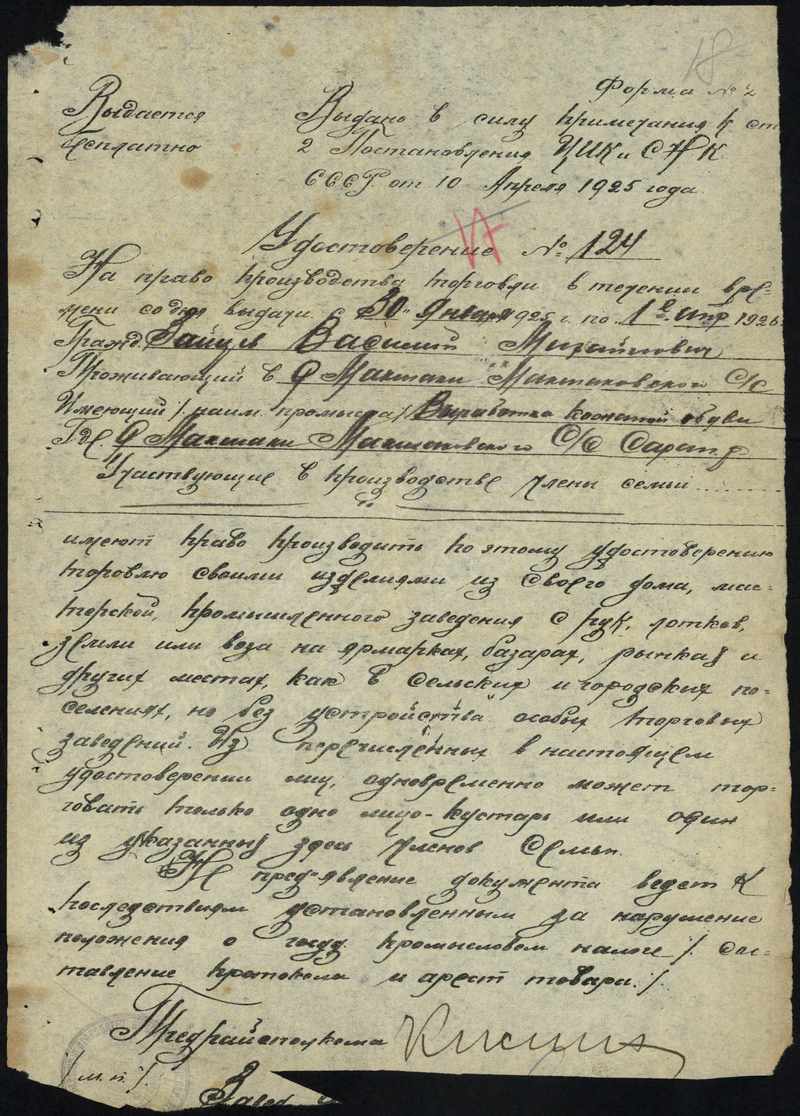 18
Форма № 2
Выдается Выдано в силу примечания к ст
бесплатно 2 Постановления ЦИК и СНК
СССР. от 10 Апреля 1925 года
Удостоверение № 124
На право производства торговли в течении вре-
мени со дня выдачи с 30 Января 1925 г. по 1е апр 1926
Гражд. Зайцев Василий Михайлович
Проживающий в С Мактаки Мактаковского С/С
Имеющий /наим. промысла/ Выработка кожаной обуви
Где С Мактаки Мактаковского С/С
Участвующие в производстве члены семьи
имеют право производить по этому удостоверению
торговлю своими изделиями из своего дома, мас-
торской, промышленного заведения с рук, лотков,
земли или воза на ярмарках, базарах, рынках и
других местах, как в сельских и городских по-
селениях, но без устройства особых торговых
заведений. Из перечисленных в настоящем
удостоверении лиц, одновременно может тор-
говать только одно лицо-кустарь или один
из указанных здесь членов семьи.
Не пред'явление документа ведет к
последствиям установленным за нарушение
положения о госуд. промысловом налоге /. сос-
тавление протокола и арест товара. /.
Предрайисполкома
/м.п/.
Завед.